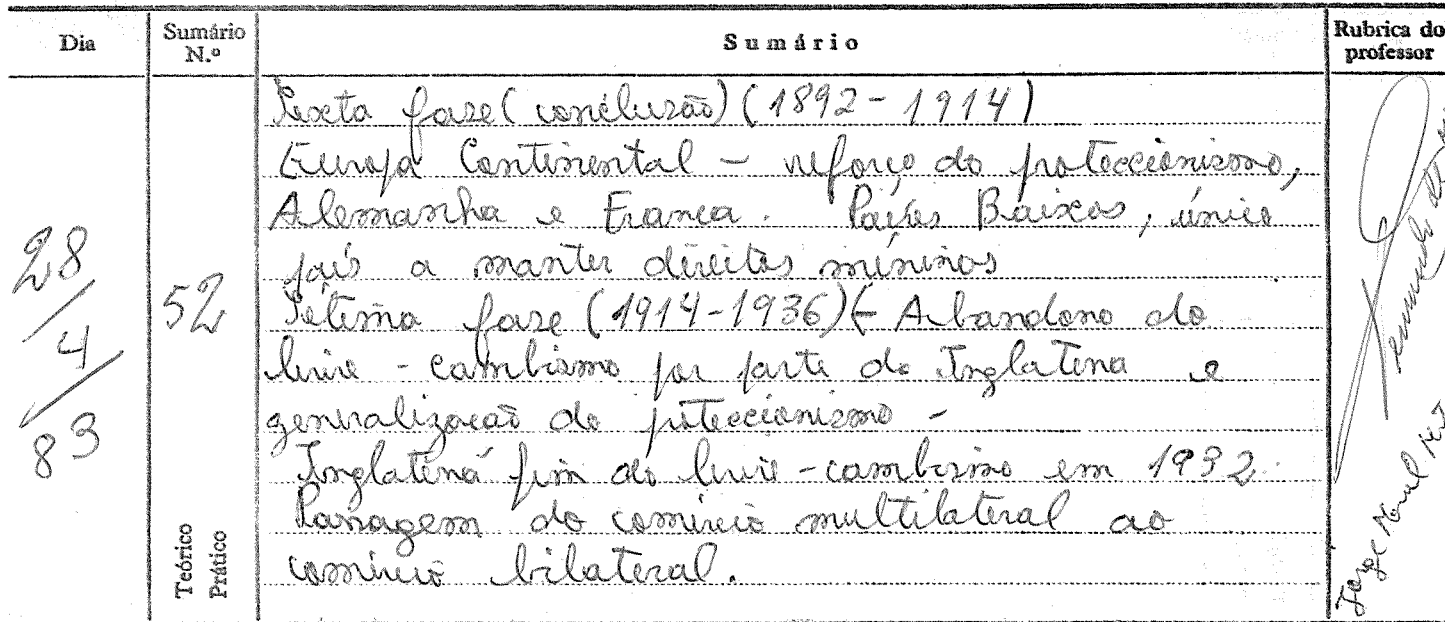 Dia
Sumário N.º
Sumário
Rubrica do professor
28/4/83
52
Teórico
Prático
Sexta fase (conclusão) (1892-1914)
Europa Continental - reforço do proteccionismo,
Alemanha e França. Países Baixos, único
país a manter direitos mínimos
Sétima fase (1914-1936) (- Abandono do
livre-cambismo por parte da Inglaterra e
generalização do proteccionismo -
Inglaterra fim do livre-cambismo em 1932.
Passagem do comércio multilateral ao
comércio bilateral.
Jorge Manuel